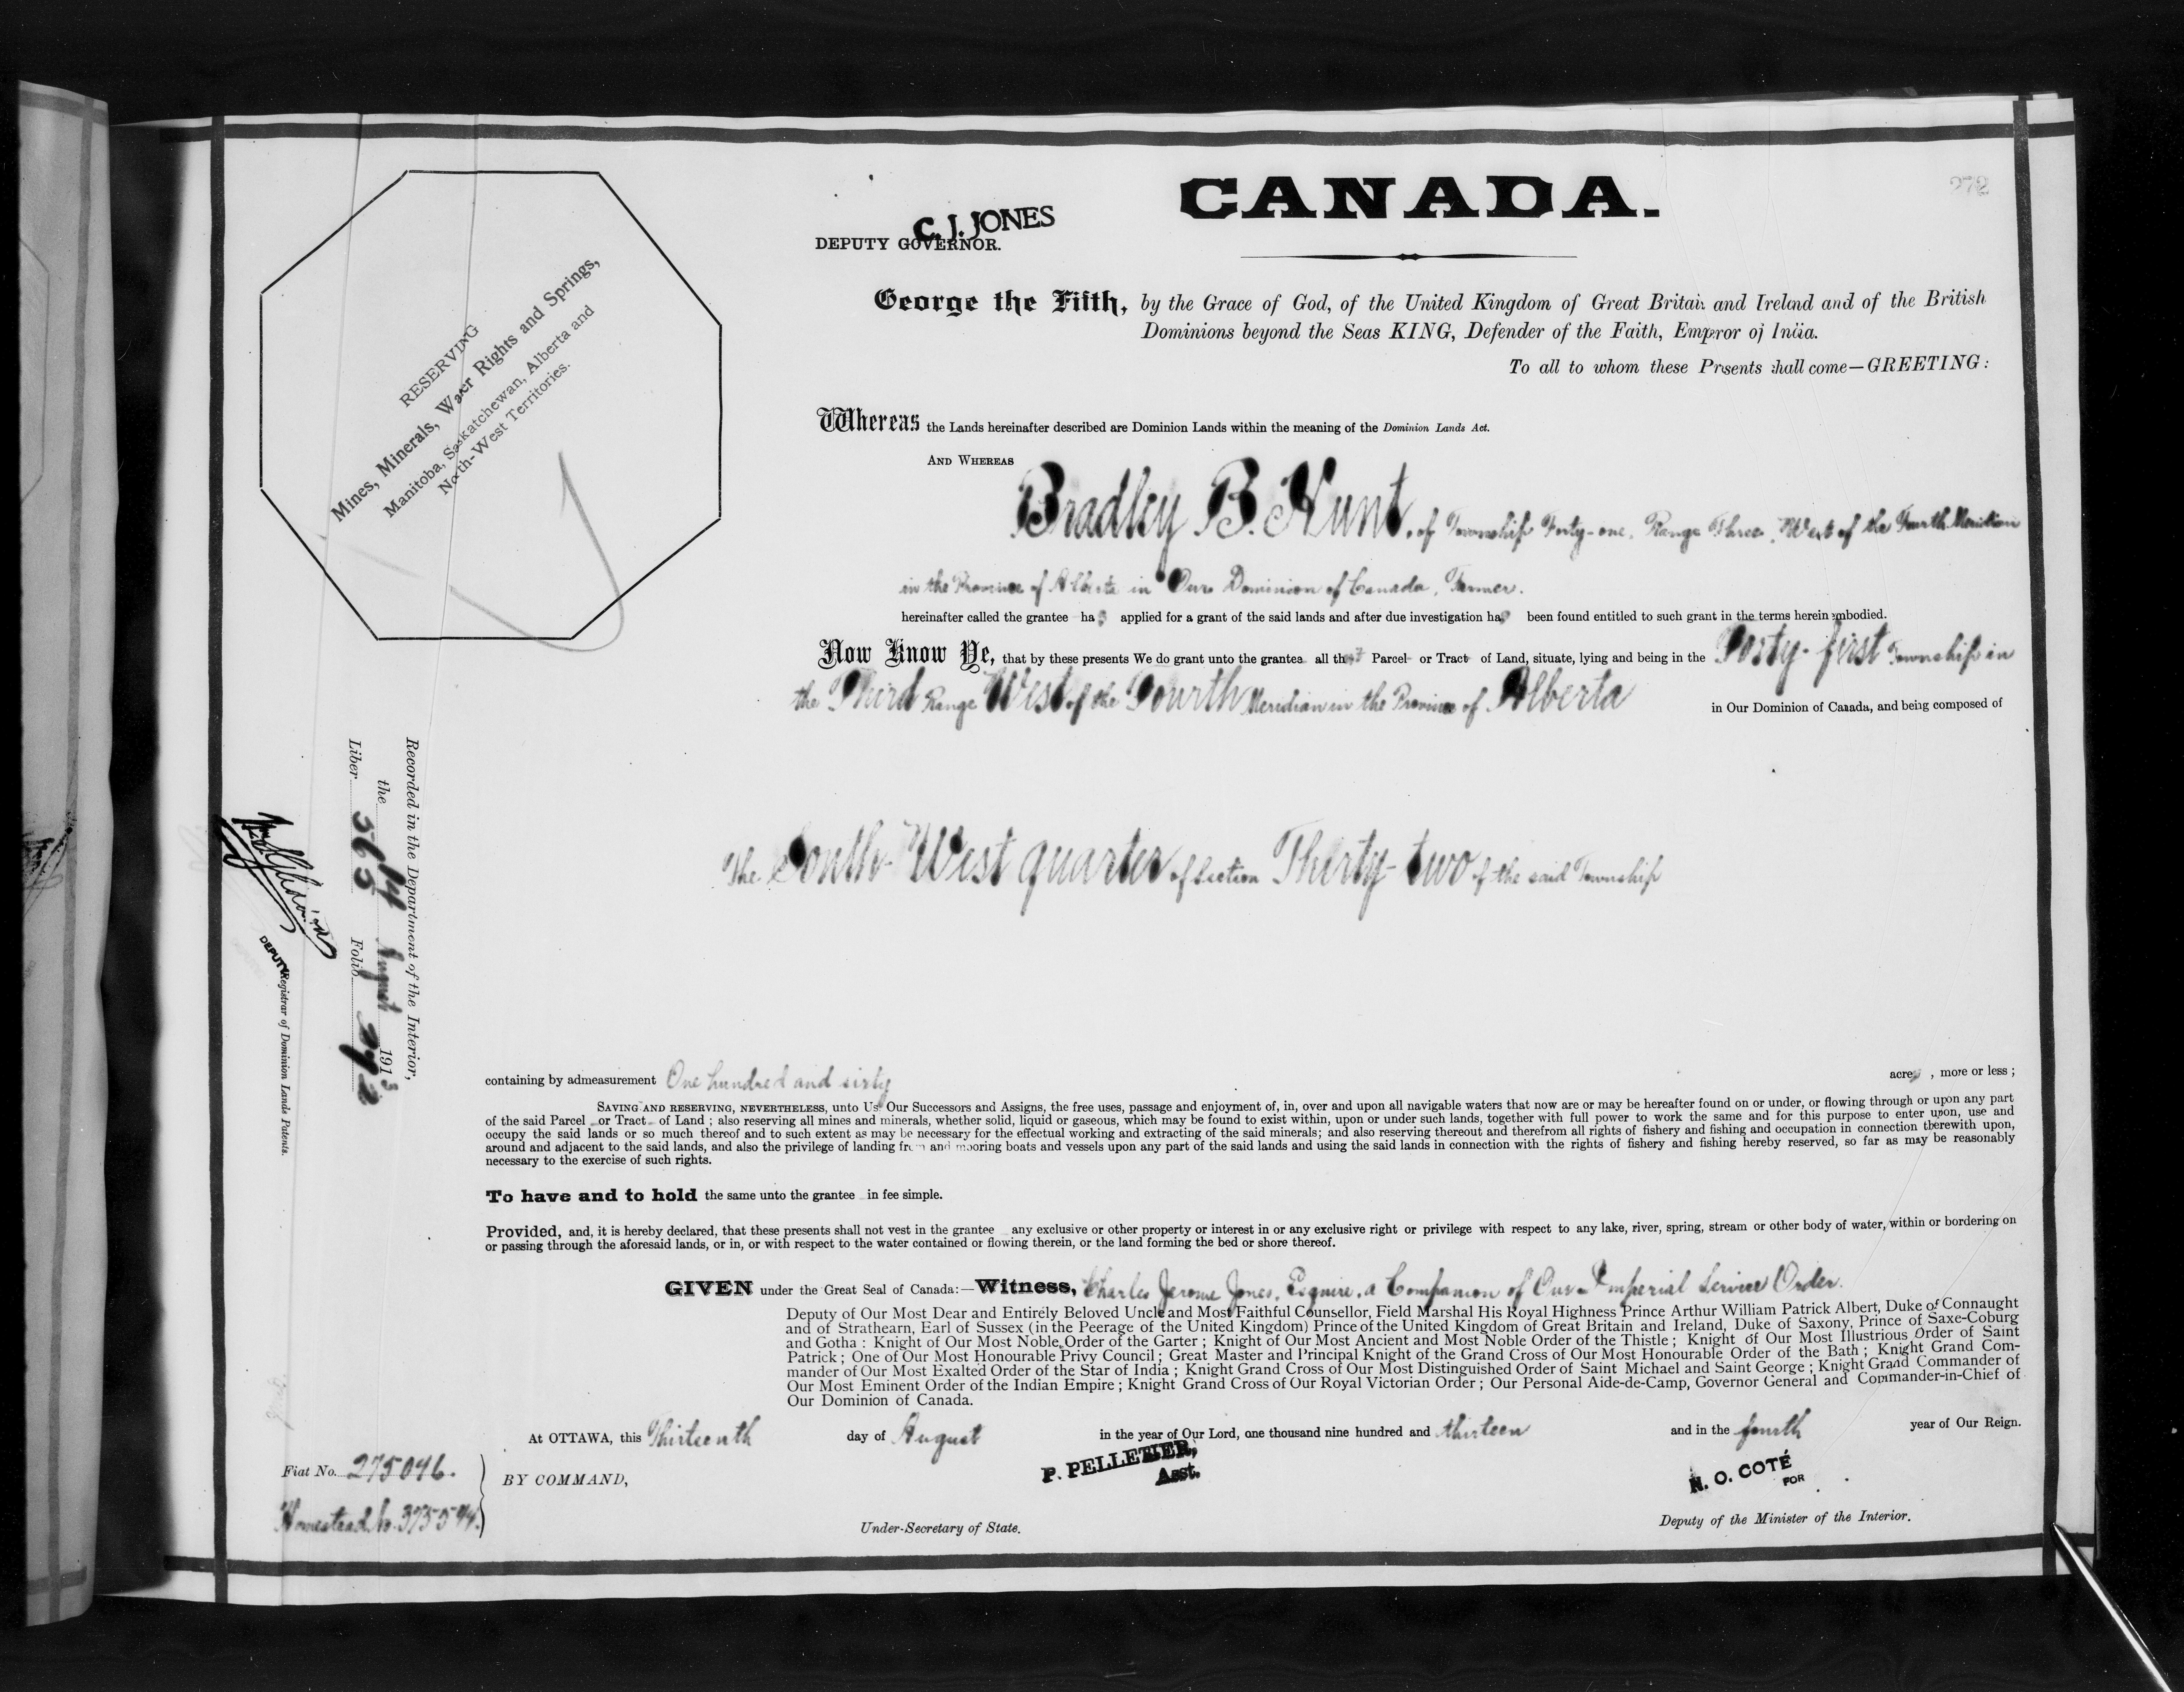 272
CANADA.
C. J. JONES
DEPUTY GOVERNOR.
RESERVING
Mines, Minerals, Water Rights and Springs,
Manitoba, Saskatchewan, Alberta and
North-West Territories.
George the Fifth, by the Grace of God, of the United Kingdom of Great Britain and Ireland and of the British
Dominions beyond the Seas KING, Defender of the Faith, Emperor of India.
To all to whom these Presents shall come—GREETING:
Whereas the Lands hereinafter described are Dominion Lands within the meaning of the Dominion Lands Act.
AND WHEREAS
Bradley B. Hunt, of Township Forty-one, Range Three, West of the Fourth Meridian
in the Province of Alberta in Our Dominion of Canada, Farmer.
hereinafter called the grantee has applied for a grant of the said lands and after due investigation has been found entitled to such grant in the terms herein embodied.
Now Know Ye, that by these presents We do grant unto the grantee all that Parcel or Tract of Land, situate, lying and being in the Forty-first Township in
the Third Range West of the Fourth Meridian in the Province of Alberta in Our Dominion of Canada, and being composed of
The South-West quarter of Section Thirty-two of the said Township
Recorded in the Department of the Interior,
the 14 August 1913
Liber 565 Folio 272
DEPUTY Registrar of Dominion Lands Patents.
containing by admeasurement One hundred and sixty acres, more or less;
SAVING AND RESERVING, NEVERTHELESS, unto Us Our Successors and Assigns, the free uses, passage and enjoyment of, in, over and upon all navigable waters that now are or may be hereafter found on or under, or flowing through or upon any part
of the said Parcel or Tract of Land; also reserving all mines and minerals, whether solid, liquid or gaseous, which may be found to exist within, upon or under such lands, together with full power to work the same and for this purpose to enter upon, use and
occupy the said lands or so much thereof and to such extent as may be necessary for the effectual working and extracting of the said minerals; and also reserving thereout and therefrom all rights of fishery and fishing and occupation in connection therewith upon,
around and adjacent to the said lands, and also the privilege of landing from and mooring boats and vessels upon any part of the said lands and using the said lands in connection with the rights of fishery and fishing hereby reserved, so far as may be reasonably
necessary to the exercise of such rights.
To have and to hold the same unto the grantee in fee simple.
Provided, and, it is hereby declared, that these presents shall not vest in the grantee any exclusive or other property or interest in or any exclusive right or privilege with respect to any lake, river, spring, stream or other body of water, within or bordering on
or passing through the aforesaid lands, or in, or with respect to the water contained or flowing therein, or the land forming the bed or shore thereof.
GIVEN under the Great Seal of Canada:—Witness, Charles Jerome Jones, Esquire, a Companion of Our Imperial Service Order.
Deputy of Our Most Dear and Entirely Beloved Uncle and Most Faithful Counsellor, Field Marshal His Royal Highness Prince Arthur William Patrick Albert, Duke of Connaught
and of Strathearn, Earl of Sussex (in the Peerage of the United Kingdom) Prince of the United Kingdom of Great Britain and Ireland, Duke of Saxony, Prince of Saxe-Coburg
and Gotha: Knight of Our Most Noble Order of the Garter; Knight of Our Most Ancient and Most Noble Order of the Thistle; Knight of Our Most Illustrious Order of Saint
Patrick; One of Our Most Honourable Privy Council; Great Master and Principal Knight of the Grand Cross of Our Most Honourable Order of the Bath; Knight Grand Com-
mander of Our Most Exalted Order of the Star of India; Knight Grand Cross of Our Most Distinguished Order of Saint Michael and Saint George; Knight Grand Commander of
Our Most Eminent Order of the Indian Empire; Knight Grand Cross of Our Royal Victorian Order; Our Personal Aide-de-Camp, Governor General and Commander-in-Chief of
Our Dominion of Canada.
At OTTAWA, this Thirteenth day of August in the year of Our Lord, one thousand nine hundred and thirteen and in the fourth year of Our Reign.
Fiat No. 275046.
Homestead No. 375594.
BY COMMAND,
P. PELLETIER,
Asst.
Under-Secretary of State.
N. O. COTÉ
FOR
Deputy of the Minister of the Interior.